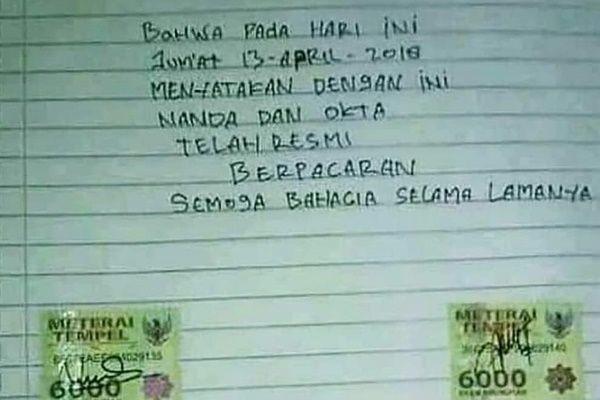 BAHWA PADA HARI INI
JUM'AT 13-APRIL-2018
MENYATAKAN DENGAN INI
NANDA DAN OKTA
TELAH RESMI
BERPACARAN
SEMOGA BAHAGIA SELAMA LAMANYA
METERAI TEMPEL
6000
METERAI TEMPEL
6000